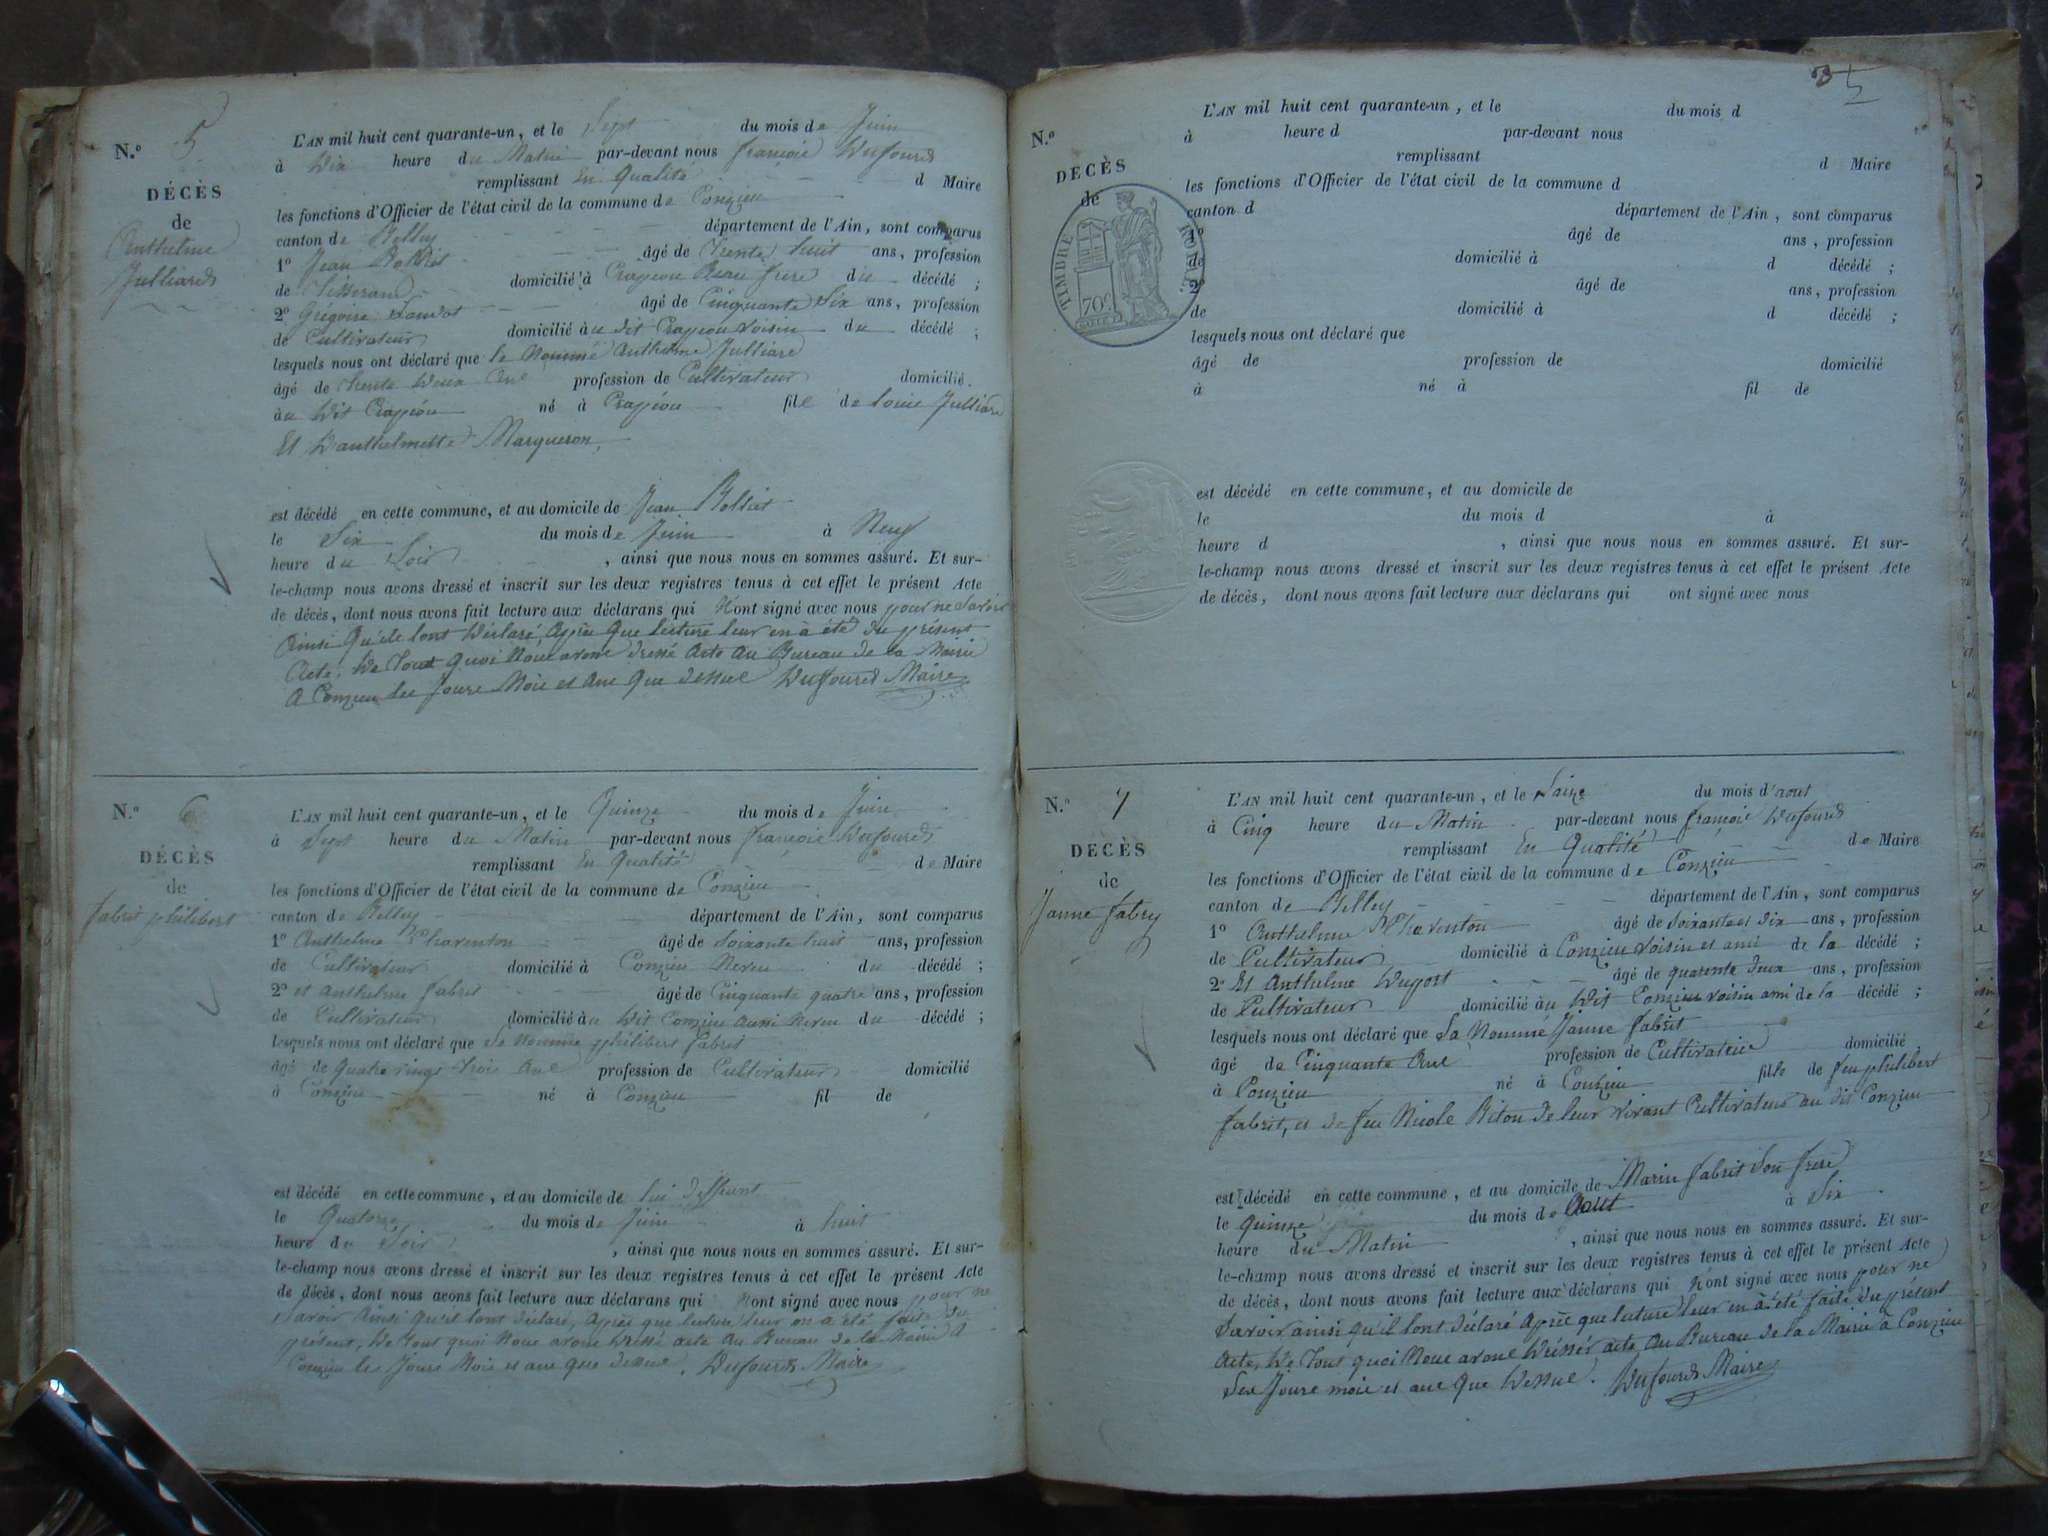 N.o 5
DÉCÈS
de
Anthelme
Julliard
L'AN mil huit cent quarante-un, et le Sept du mois de Juin
à Dix heure du Matin par-devant nous françois Dufourd
remplissant En Qualité d Maire
les fonctions d'Officier de l'état civil de la commune de Conzieu
canton de Belley département de l'Ain, sont comparus
1o Jean âgé de Trente huit ans, profession
de Tisserand domicilié à Crapéou Beau frere du décédé ;
2o Grégoire âgé de Cinquante Six ans, profession
de Cultivateur domicilié au dit Crapéou voisin du décédé ;
lesquels nous ont déclaré que le Nommé Anthelme Julliard
âgé de Trente Deux Ans profession de Cultivateur domicilié
au Dit Crapéou né à Crapéou fils de Louis Julliard
Et D'anthelmette Marqueron
est décédé en cette commune, et au domicile de Jean
le Six du mois de Juin à Neuf
heure du Soir , ainsi que nous nous en sommes assuré. Et sur-
le-champ nous avons dressé et inscrit sur les deux registres tenus à cet effet le présent Acte
de décès, dont nous avons fait lecture aux déclarans qui N'ont signé avec nous pour ne Savoir
Ainsi Qu'ils lont Déclaré, Après Que lecture leur en à été du présent
Acte, De Tout Quoi Nous avons Dressé Acte Au Bureau de la Mairie
A Conzieu les Jours Mois et Ans Que dessus Dufourd Maire
N.o 6
DÉCÈS
de
fabrit philibert
L'AN mil huit cent quarante-un, et le Quinze du mois de Juin
à Sept heure du Matin par-devant nous françois Dufourd
remplissant En Qualité de Maire
les fonctions d'Officier de l'état civil de la commune de Conzieu
canton de Belley département de l'Ain, sont comparus
1o Anthelme Charenton âgé de Soixante huit ans, profession
de Cultivateur domicilié à Conzieu Neveu du décédé ;
2o et Anthelme fabrit âgé de Cinquante quatre ans, profession
de Cultivateur domicilié au Dit Conzieu aussi Neveu du décédé ;
lesquels nous ont déclaré que Le Nommé philibert fabrit
âgé de Quatre vingt Trois Ans profession de Cultivateur domicilié
à Conzieu né à Conzieu fil de
est décédé en cette commune, et au domicile de lui deffunt
le Quatorze du mois de Juin à huit
heure du Soir , ainsi que nous nous en sommes assuré. Et sur-
le-champ nous avons dressé et inscrit sur les deux registres tenus à cet effet le présent Acte
de décès, dont nous avons fait lecture aux déclarans qui N'ont signé avec nous pour ne
Savoir Ainsi Qu'il lont déclaré, Après que lecture leur en a été faite du
présent, De Tout quoi Nous avons Dressé acte Au Bureau de la Mairie A
Conzieu les Jours Mois et ans que dessus. Dufourd Maire
N.o
DECÈS
de
TIMBRE ROYAL
70c
L'AN mil huit cent quarante-un, et le du mois d
à heure d par-devant nous
remplissant d Maire
les fonctions d'Officier de l'état civil de la commune d
canton d département de l'Ain, sont comparus
1o âgé de ans, profession
de domicilié à d décédé ;
2o âgé de ans, profession
de domicilié à d décédé ;
lesquels nous ont déclaré que
âgé de profession de domicilié
à né à fil de
est décédé en cette commune, et au domicile de
le du mois d à
heure d , ainsi que nous nous en sommes assuré. Et sur-
le-champ nous avons dressé et inscrit sur les deux registres tenus à cet effet le présent Acte
de décès, dont nous avons fait lecture aux déclarans qui ont signé avec nous
N.o 7
DECÈS
de
Janne fabry
L'AN mil huit cent quarante-un, et le Saize du mois d'aout
à Cinq heure du Matin par-devant nous françois Dufourd
remplissant En Qualité de Maire
les fonctions d'Officier de l'état civil de la commune de Conzieu
canton de Belley département de l'Ain, sont comparus
1o Anthelme Charenton âgé de Soixante et dix ans, profession
de Cultivateur domicilié à Conzieu voisin et ami de la décédé ;
2o Et Anthelme Duport âgé de quarente deux ans, profession
de Cultivateur domicilié au Dit Conzieu voisin ami de la décédé ;
lesquels nous ont déclaré que La Nommé Janne fabrit
âgé de Cinquante Ans profession de Cultivateur domicilié
à Conzieu né à Conzieu fille de feu philibert
fabrit, et de feu Nicole Biton de leur vivant Cultivateur au dit Conzieu
est décédé en cette commune, et au domicile de Marin fabrit Son frere
le Quinze du mois de Août à Six
heure du Matin , ainsi que nous nous en sommes assuré. Et sur-
le-champ nous avons dressé et inscrit sur les deux registres tenus à cet effet le présent Acte
de décès, dont nous avons fait lecture aux déclarans qui N'ont signé avec nous pour ne
Savoir ainsi qu'il lont déclaré Après que lecture leur en à été faite du présent
Acte, De Tout quoi Nous avons Dressér acte Au Bureau de la Mairie à Conzieu
Les Jours mois et ans Que Dessus. Dufourd Maire